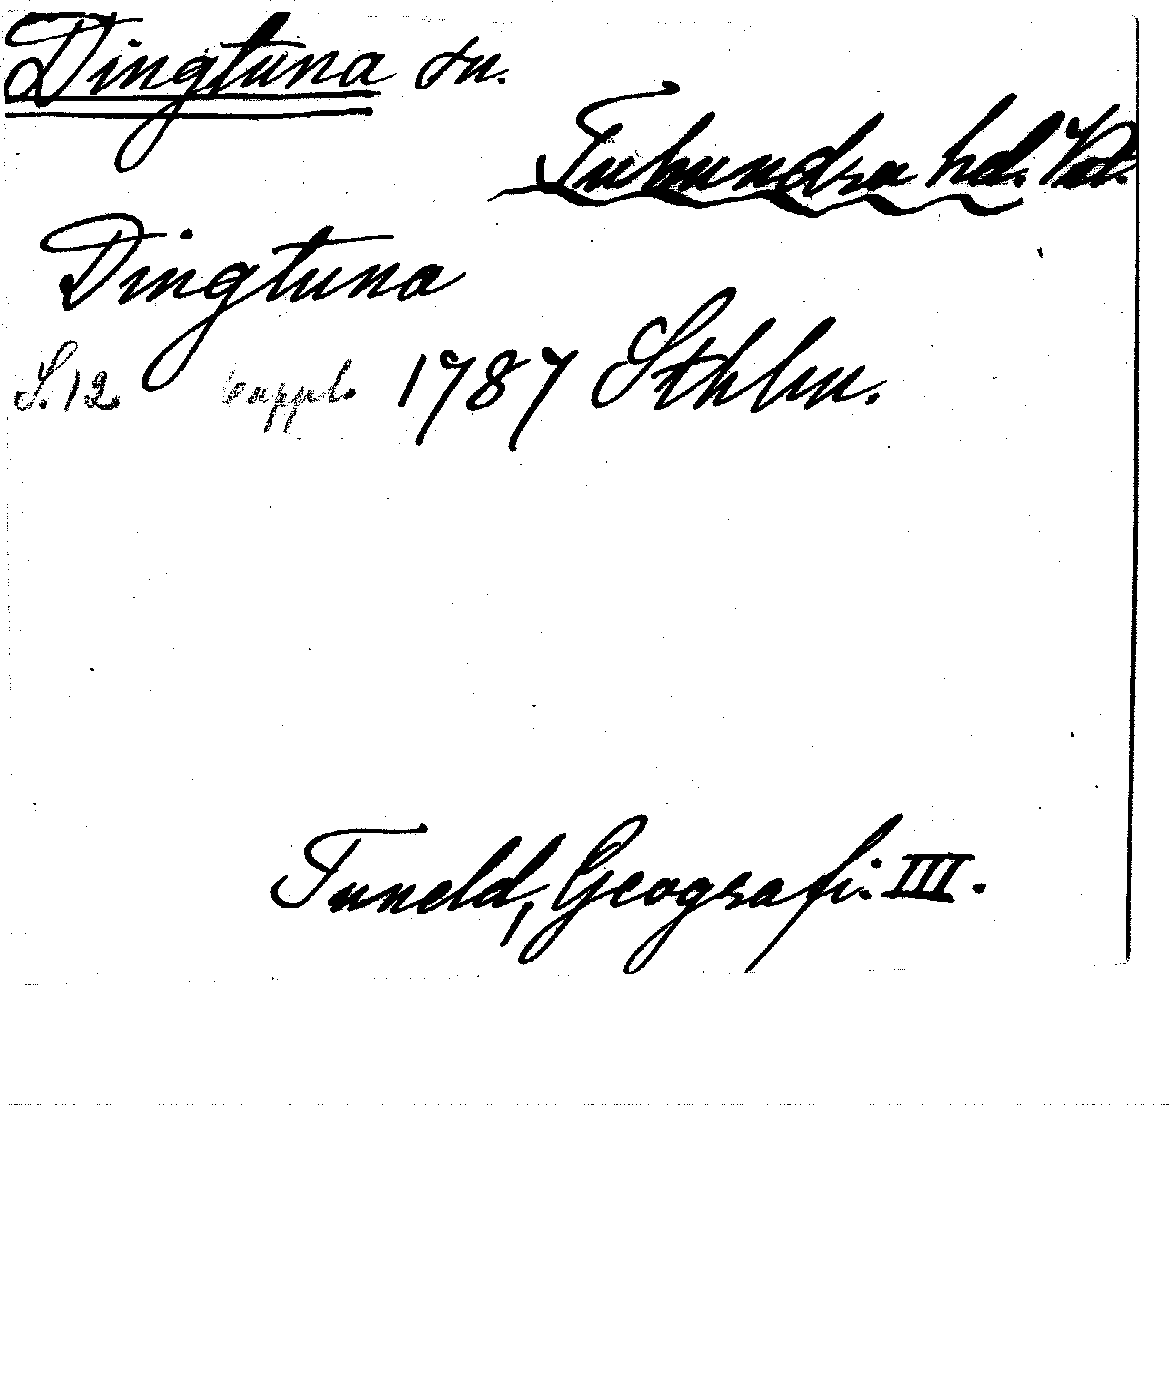 Dingtuna sn.
Tuhundra hd. Vstm.
Dingtuna
S. 12 suppl. 1787 Sthlm.
Tuneld, Geografi. III.